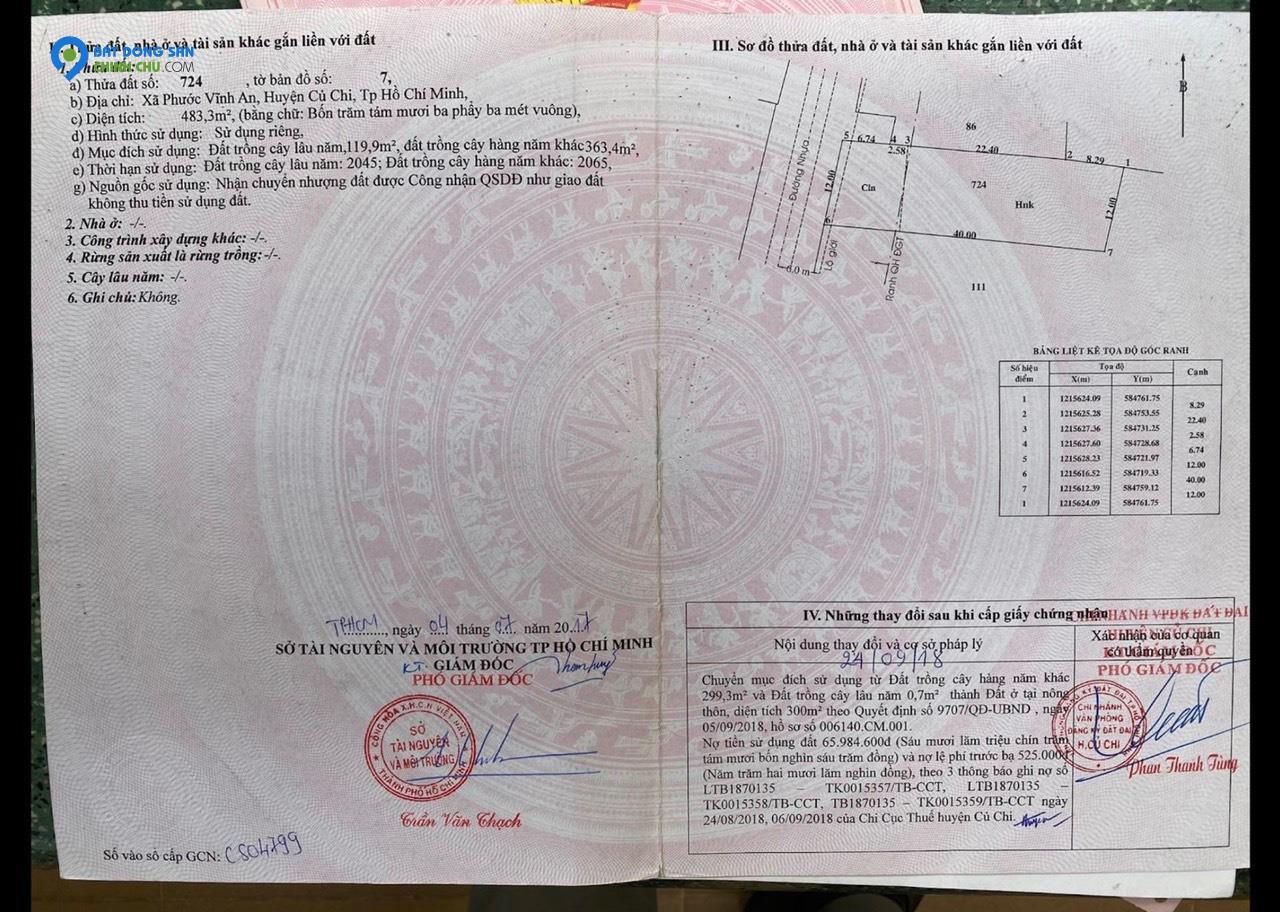 I. Thửa đất, nhà ở và tài sản khác gắn liền với đất
BAT DONG SAN
CHINH CHU.COM
1. Thửa đất:
a) Thửa đất số: 724 , tờ bản đồ số: 7,
b) Địa chỉ: Xã Phước Vĩnh An, Huyện Củ Chi, Tp Hồ Chí Minh,
c) Diện tích: 483,3m², (bằng chữ: Bốn trăm tám mươi ba phẩy ba mét vuông),
d) Hình thức sử dụng: Sử dụng riêng,
đ) Mục đích sử dụng: Đất trồng cây lâu năm,119,9m², đất trồng cây hàng năm khác363,4m²,
e) Thời hạn sử dụng: Đất trồng cây lâu năm: 2045; Đất trồng cây hàng năm khác: 2065,
g) Nguồn gốc sử dụng: Nhận chuyển nhượng đất được Công nhận QSDĐ như giao đất
không thu tiền sử dụng đất.
2. Nhà ở: -/-.
3. Công trình xây dựng khác: -/-.
4. Rừng sản xuất là rừng trồng:-/-.
5. Cây lâu năm: -/-.
6. Ghi chú: Không.
TPHCM, ngày 04 tháng 07 năm 2017
SỞ TÀI NGUYÊN VÀ MÔI TRƯỜNG TP HỒ CHÍ MINH
KT. GIÁM ĐỐC
PHÓ GIÁM ĐỐC
CỘNG HÒA X.H.C.N VIỆT NAM
SỞ
TÀI NGUYÊN
VÀ MÔI TRƯỜNG
THÀNH PHỐ HỒ CHÍ MINH
Trần Văn Thạch
Số vào sổ cấp GCN: CS04799
III. Sơ đồ thửa đất, nhà ở và tài sản khác gắn liền với đất
B
86
5 6.74 4 3
2.58
22.40
2 8.29 1
Đường Nhựa
12.00
Cln
724
Hnk
12.00
6
40.00
7
6.0 m
Lộ giới
Ranh QH ĐGT
111
BẢNG LIỆT KÊ TỌA ĐỘ GÓC RANH
Số hiệu điểm Tọa độ Cạnh
X(m) Y(m)
1 1215624.09 584761.75
8.29
2 1215625.28 584753.55
22.40
3 1215627.36 584731.25
2.58
4 1215627.60 584728.68
6.74
5 1215628.23 584721.97
12.00
6 1215616.52 584719.33
40.00
7 1215612.39 584759.12
12.00
1 1215624.09 584761.75
IV. Những thay đổi sau khi cấp giấy chứng nhận
Nội dung thay đổi và cơ sở pháp lý
Xác nhận của cơ quan
có thẩm quyền
CHI NHÁNH VPĐK ĐẤT ĐAI
PHÓ GIÁM ĐỐC
24/09/18
Chuyển mục đích sử dụng từ Đất trồng cây hàng năm khác
299,3m² và Đất trồng cây lâu năm 0,7m² thành Đất ở tại nông
thôn, diện tích 300m² theo Quyết định số 9707/QĐ-UBND , ngày
05/09/2018, hồ sơ số 006140.CM.001.
Nợ tiền sử dụng đất 65.984.600đ (Sáu mươi lăm triệu chín trăm
tám mươi bốn nghìn sáu trăm đồng) và nợ lệ phí trước bạ 525.000đ
(Năm trăm hai mươi lăm nghìn đồng), theo 3 thông báo ghi nợ số
LTB1870135 – TK0015357/TB-CCT, LTB1870135 –
TK0015358/TB-CCT, TB1870135 – TK0015359/TB-CCT ngày
24/08/2018, 06/09/2018 của Chi Cục Thuế huyện Củ Chi.
CHI NHÁNH
VĂN PHÒNG
ĐĂNG KÝ ĐẤT ĐAI
H.CỦ CHI
Phan Thanh Tùng